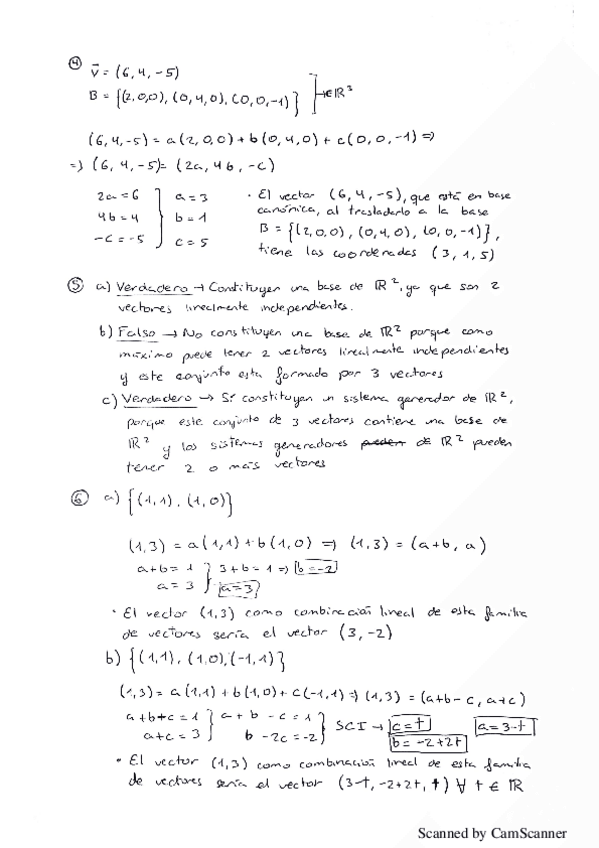 ④ v⃗ = (6, 4, -5)
B = {(2,0,0), (0,4,0), (0,0,-1)} ∈ ℝ³
(6,4,-5) = a(2,0,0) + b(0,4,0) + c(0,0,-1) ⇒
⇒ (6,4,-5) = (2a, 4b, -c)
2a = 6 a = 3 · El vector (6,4,-5), que está en base
4b = 4 b = 1 canónica, al trasladarlo a la base
-c = -5 c = 5 B = {(2,0,0), (0,4,0), (0,0,-1)},
tiene las coordenadas (3,1,5)
⑤ a) Verdadero → Constituyen una base de ℝ², ya que son 2
vectores linealmente independientes.
b) Falso → No constituyen una base de ℝ² porque como
máximo puede tener 2 vectores linealmente independientes
y este conjunto esta formado por 3 vectores
c) Verdadero → Sí constituyen un sistema generador de ℝ²,
porque este conjunto de 3 vectores contiene una base de
ℝ² y los sistemas generadores pueden de ℝ² pueden
tener 2 o más vectores
⑥ a) {(1,1), (1,0)}
(1,3) = a(1,1) + b(1,0) ⇒ (1,3) = (a+b, a)
a+b = 1 } 3+b = 1 ⇒ b = -2
a = 3 } a = 3
· El vector (1,3) como combinación lineal de esta familia
de vectores sería el vector (3,-2)
b) {(1,1), (1,0), (-1,1)}
(1,3) = a(1,1) + b(1,0) + c(-1,1) ⇒ (1,3) = (a+b-c, a+c)
a+b+c = 1 } a + b - c = 1 } SCI → c = t a = 3-t
a+c = 3 } b - 2c = -2 } b = -2+2t
· El vector (1,3) como combinación lineal de esta familia
de vectores sería el vector (3-t, -2+2t, t) ∀ t ∈ ℝ
Scanned by CamScanner